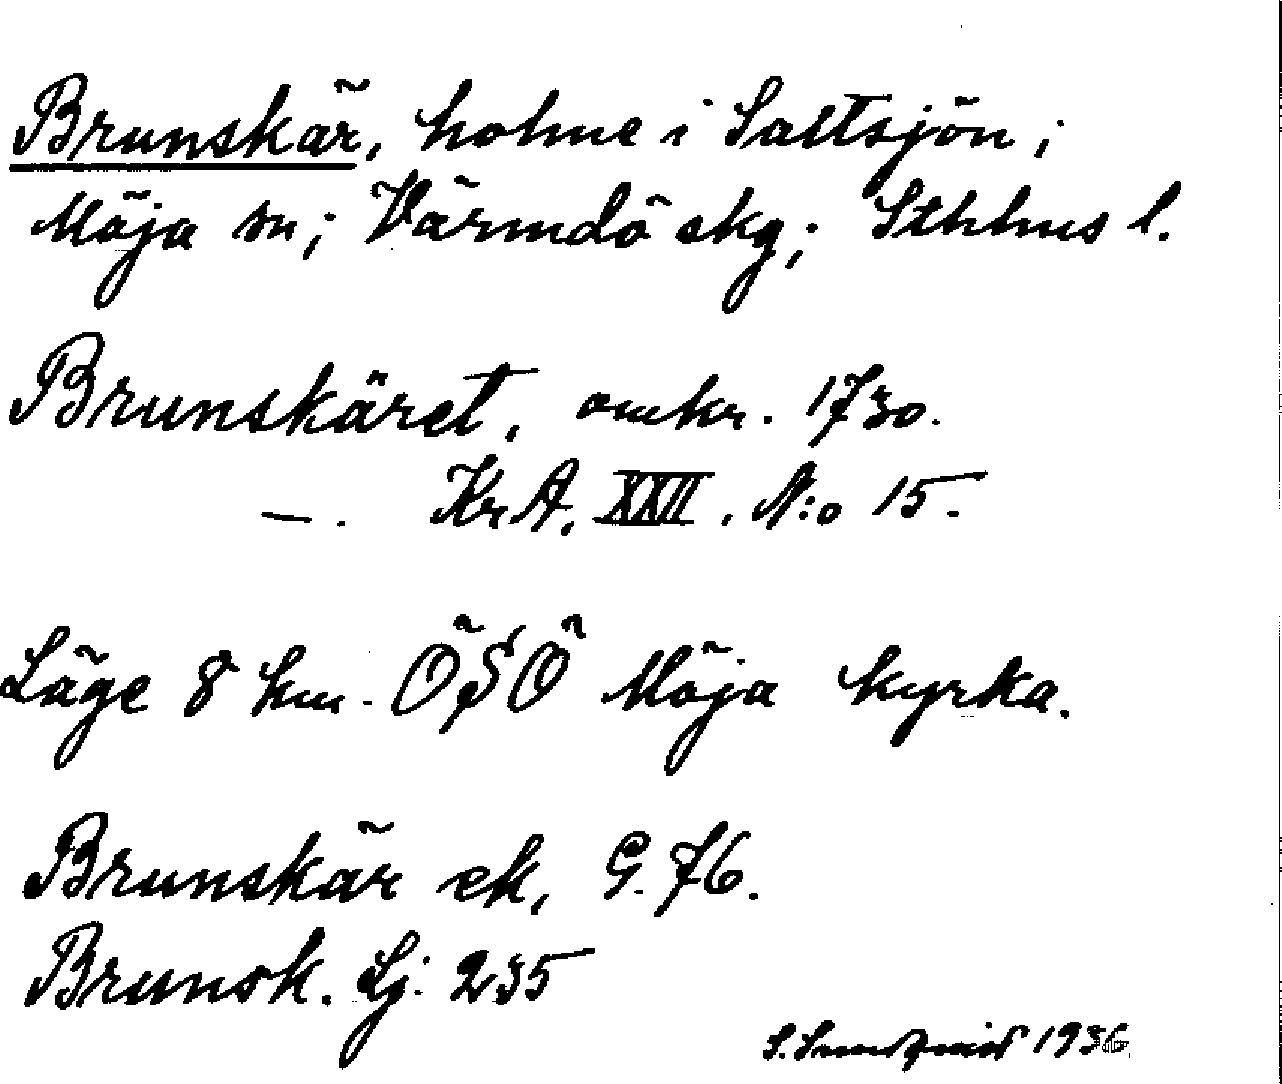 Brunskär, holme i Saltsjön;
Möja sn; Värmdö skg; Sthlms l.
Brunskäret, omkr. 1730.
—. KrA. XXII. N:o 15.
Läge 8 km. ÖSÖ Möja kyrka.
Brunskär ek, G. 76.
Brunsk. Lj: 235
S. Sundqvist 1936